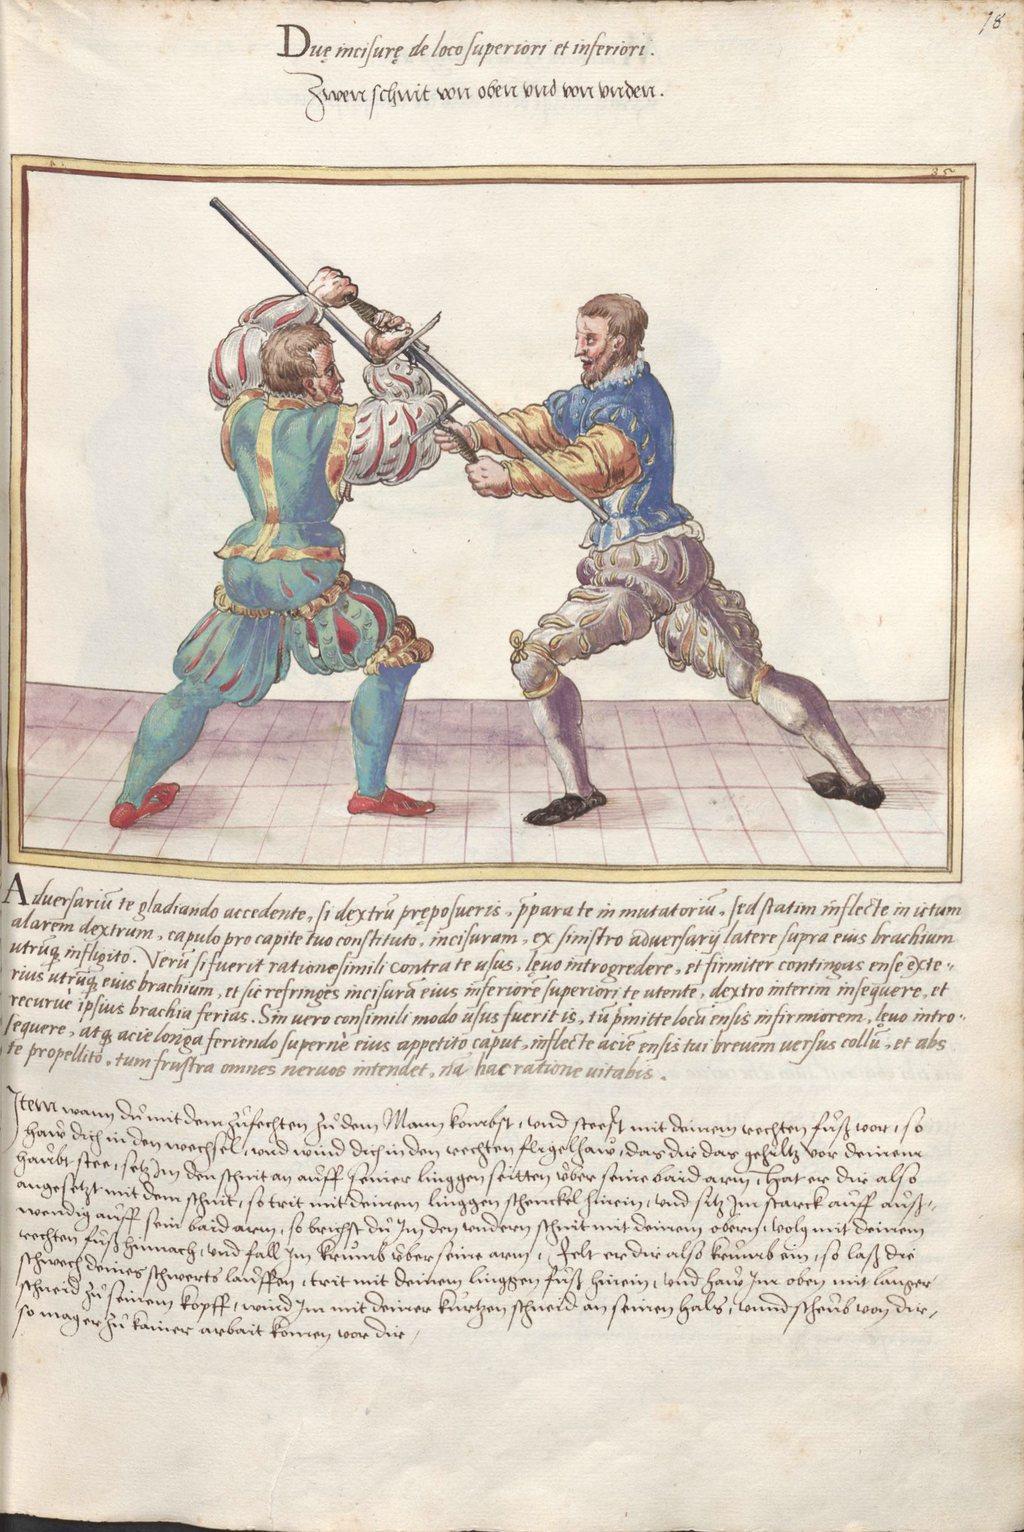 78
Duę incisurę de loco superiori et inferiori.
Zwen schnit von oben vnd von vnden.
35
Adversariū te gladiando accedente, si dextrū pręposueris, p̄para te in mutatoriū, sed statim inflecte in ictum
alarem dextrum, capulo pro capite tuo constituto, incisuram, ex sinistro adversarij latere supra eius brachium
utrūq̨ infligito. Verū si fuerit ratione simili contra te usus, lęvo introgredere, et firmiter contingas ense exte-
rius utrūq̨ eius brachium, et sic refringes incisurā eius inferiorē superiori te utente, dextro interim insequere, et
recurve ipsius brachia ferias. Sin vero consimili modo usus fuerit is, tū p̄mitte locū ensis infirmiorem, lęvo intro-
sequere, atq̨ acie longa feriendo supernè eius appetito caput, inflecte aciē ensis tui brevem versus collū, et abs
te propellito, tum frustra omnes nervos intendet, nā hac ratione vitabis.
Item wann du mit dem zufechten zu dem Mann kombst, vnd steest mit deinem rechten fuß vor, so
haw dich in den wechsel, vnd wind dich in den rechten fligelhaw, das dir das gehiltz vor deinem
haubt stee, setz Im den schnit an auff seiner linggen seitten vber seine baid arm, Hat er dir also
angesetzt mit dem schnit, so trit mit deinem linggen schenckel hinein, vnd sitz Im starck auff auß-
wendig auff sein baid arm, so brichst du Im den vndern schnit mit deinem obern, volg mit deinem
rechten fuß hinnach, vnd fall Im krumb vber seine arm, Felt er dir also krumb ein, so laß die
schwech deines schwerts lauffen, trit mit deinem linggen fuß hinein, vnd haw Im oben mit langer
schneid zu seinem kopff, wind Im mit deiner kurtzen schneid an seinen hals, vnnd scheub von dir,
so mag er zu kainer arbait komen vor dir,